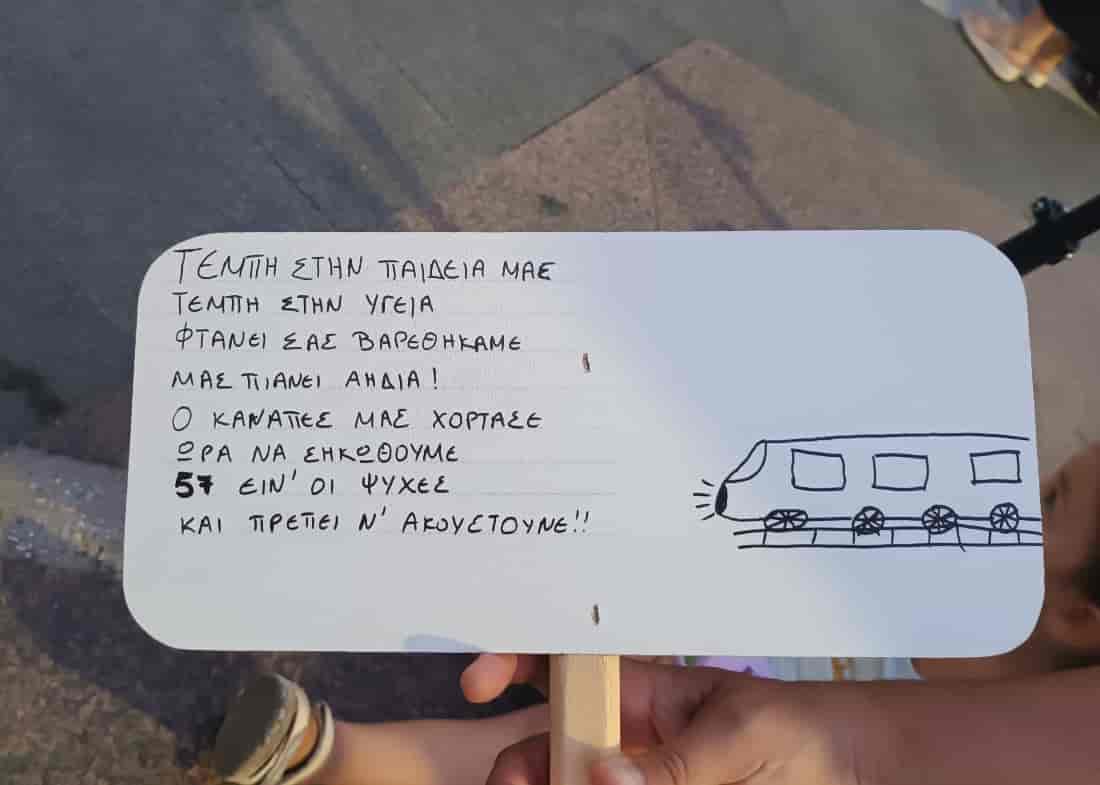 ΤΕΜΠΗ ΣΤΗΝ ΠΑΙΔΕΙΑ ΜΑΣ
ΤΕΜΠΗ ΣΤΗΝ ΥΓΕΙΑ
ΦΤΑΝΕΙ ΣΑΣ ΒΑΡΕΘΗΚΑΜΕ
ΜΑΣ ΠΙΑΝΕΙ ΑΗΔΙΑ!
Ο ΚΑΝΑΠΕΣ ΜΑΣ ΧΟΡΤΑΣΕ
ΩΡΑ ΝΑ ΣΗΚΩΘΟΥΜΕ
57 ΕΙΝ' ΟΙ ΨΥΧΕΣ
ΚΑΙ ΠΡΕΠΕΙ Ν' ΑΚΟΥΣΤΟΥΝΕ!!